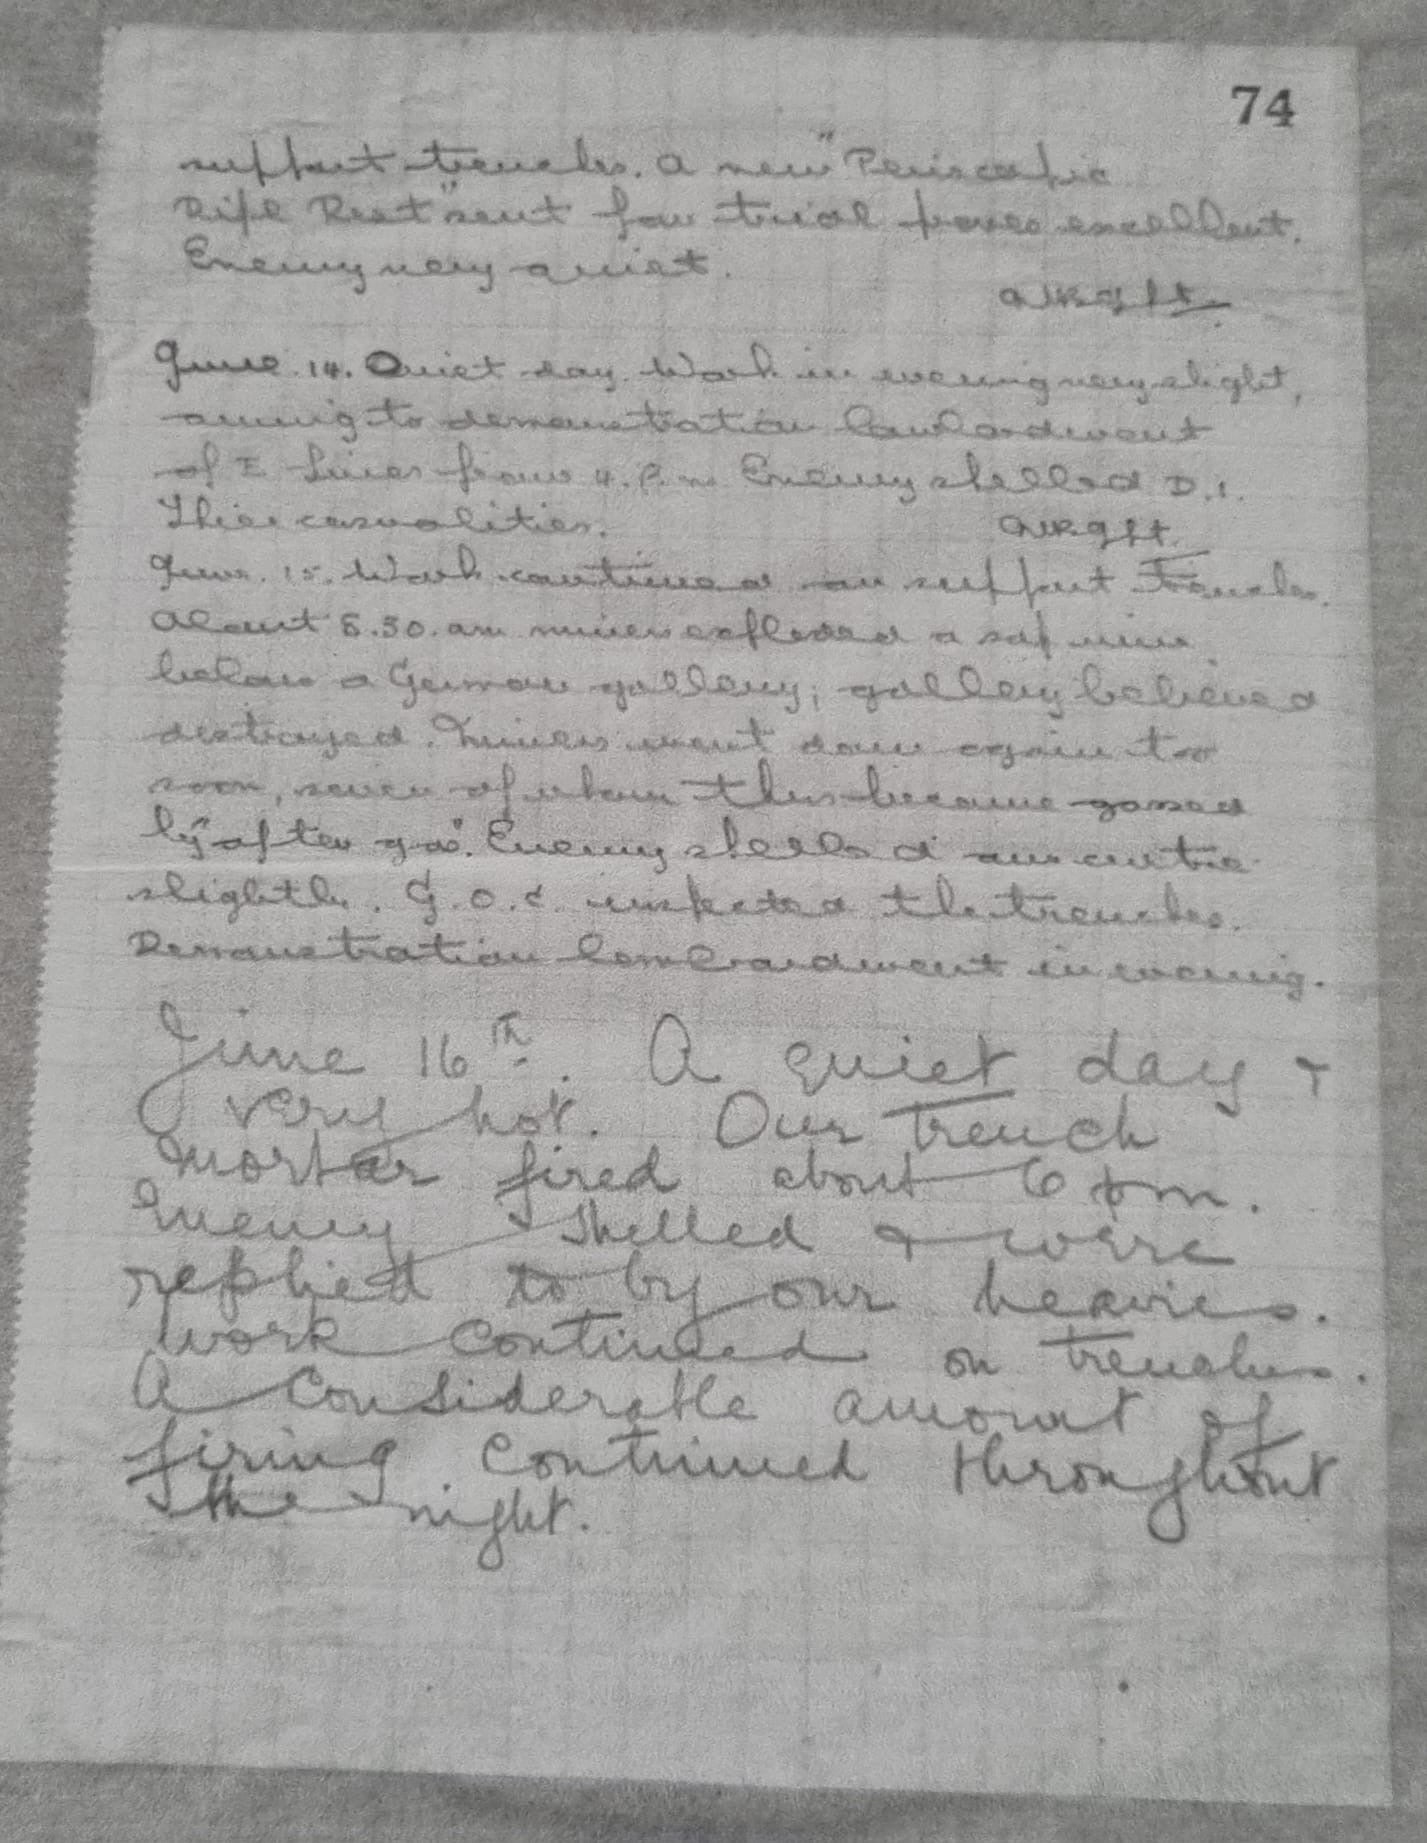 74
support trenches. A new "Periscopic
Rifle Rest" sent for trial proves excellent.
Enemy very quiet.
June. 14. Quiet day. Work in evening very slight,
owing to demonstration bombardment
of E lines from 4. P.m. Enemy shelled D.1.
Three casualities.
June. 15. Work continued on support trenches.
About 8.30. am miners exploded a sap mine
below a German gallery; gallery believed
destroyed. Miners went down again too
soon, seven of whom thus became gassed
by "after gas". Enemy shelled our centre
slightly. G.O.C. inspected the trenches.
Demonstration bombardment in evening.
June 16th. A quiet day +
very hot. Our trench
mortar fired about 6 pm.
Enemy shelled & were
replied to by our heavies.
Work continued on trenches.
A considerable amount of
firing continued throughout
the night.